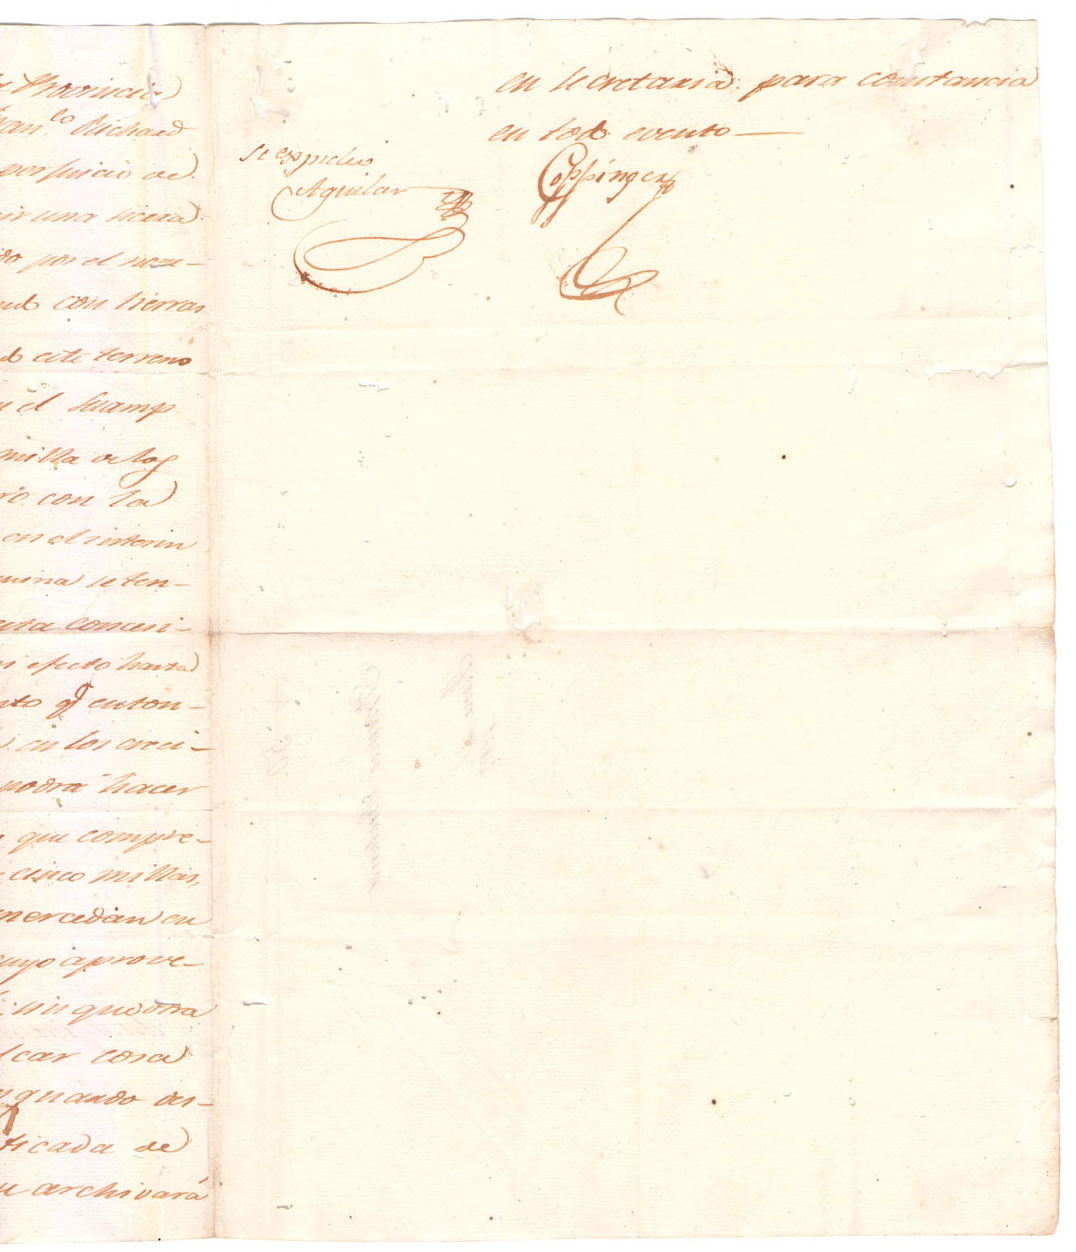 Provincia
Fran.co Richard
perjuicio de
una sierra
do por el nom-
con tierras
este terreno
el Swamp
milla de los
con la
en el interin
se ten-
esta concesi-
efecto hasta
q.e enton-
en los creci-
podrá hacer
que compre-
cinco millas,
mercedan en
cuyo aprove-
sin que otra
car cosa
quando des-
ficada de
archivará
en secretaria para constancia
en todo evento—
Se expidio
Aguilar
Coppinger